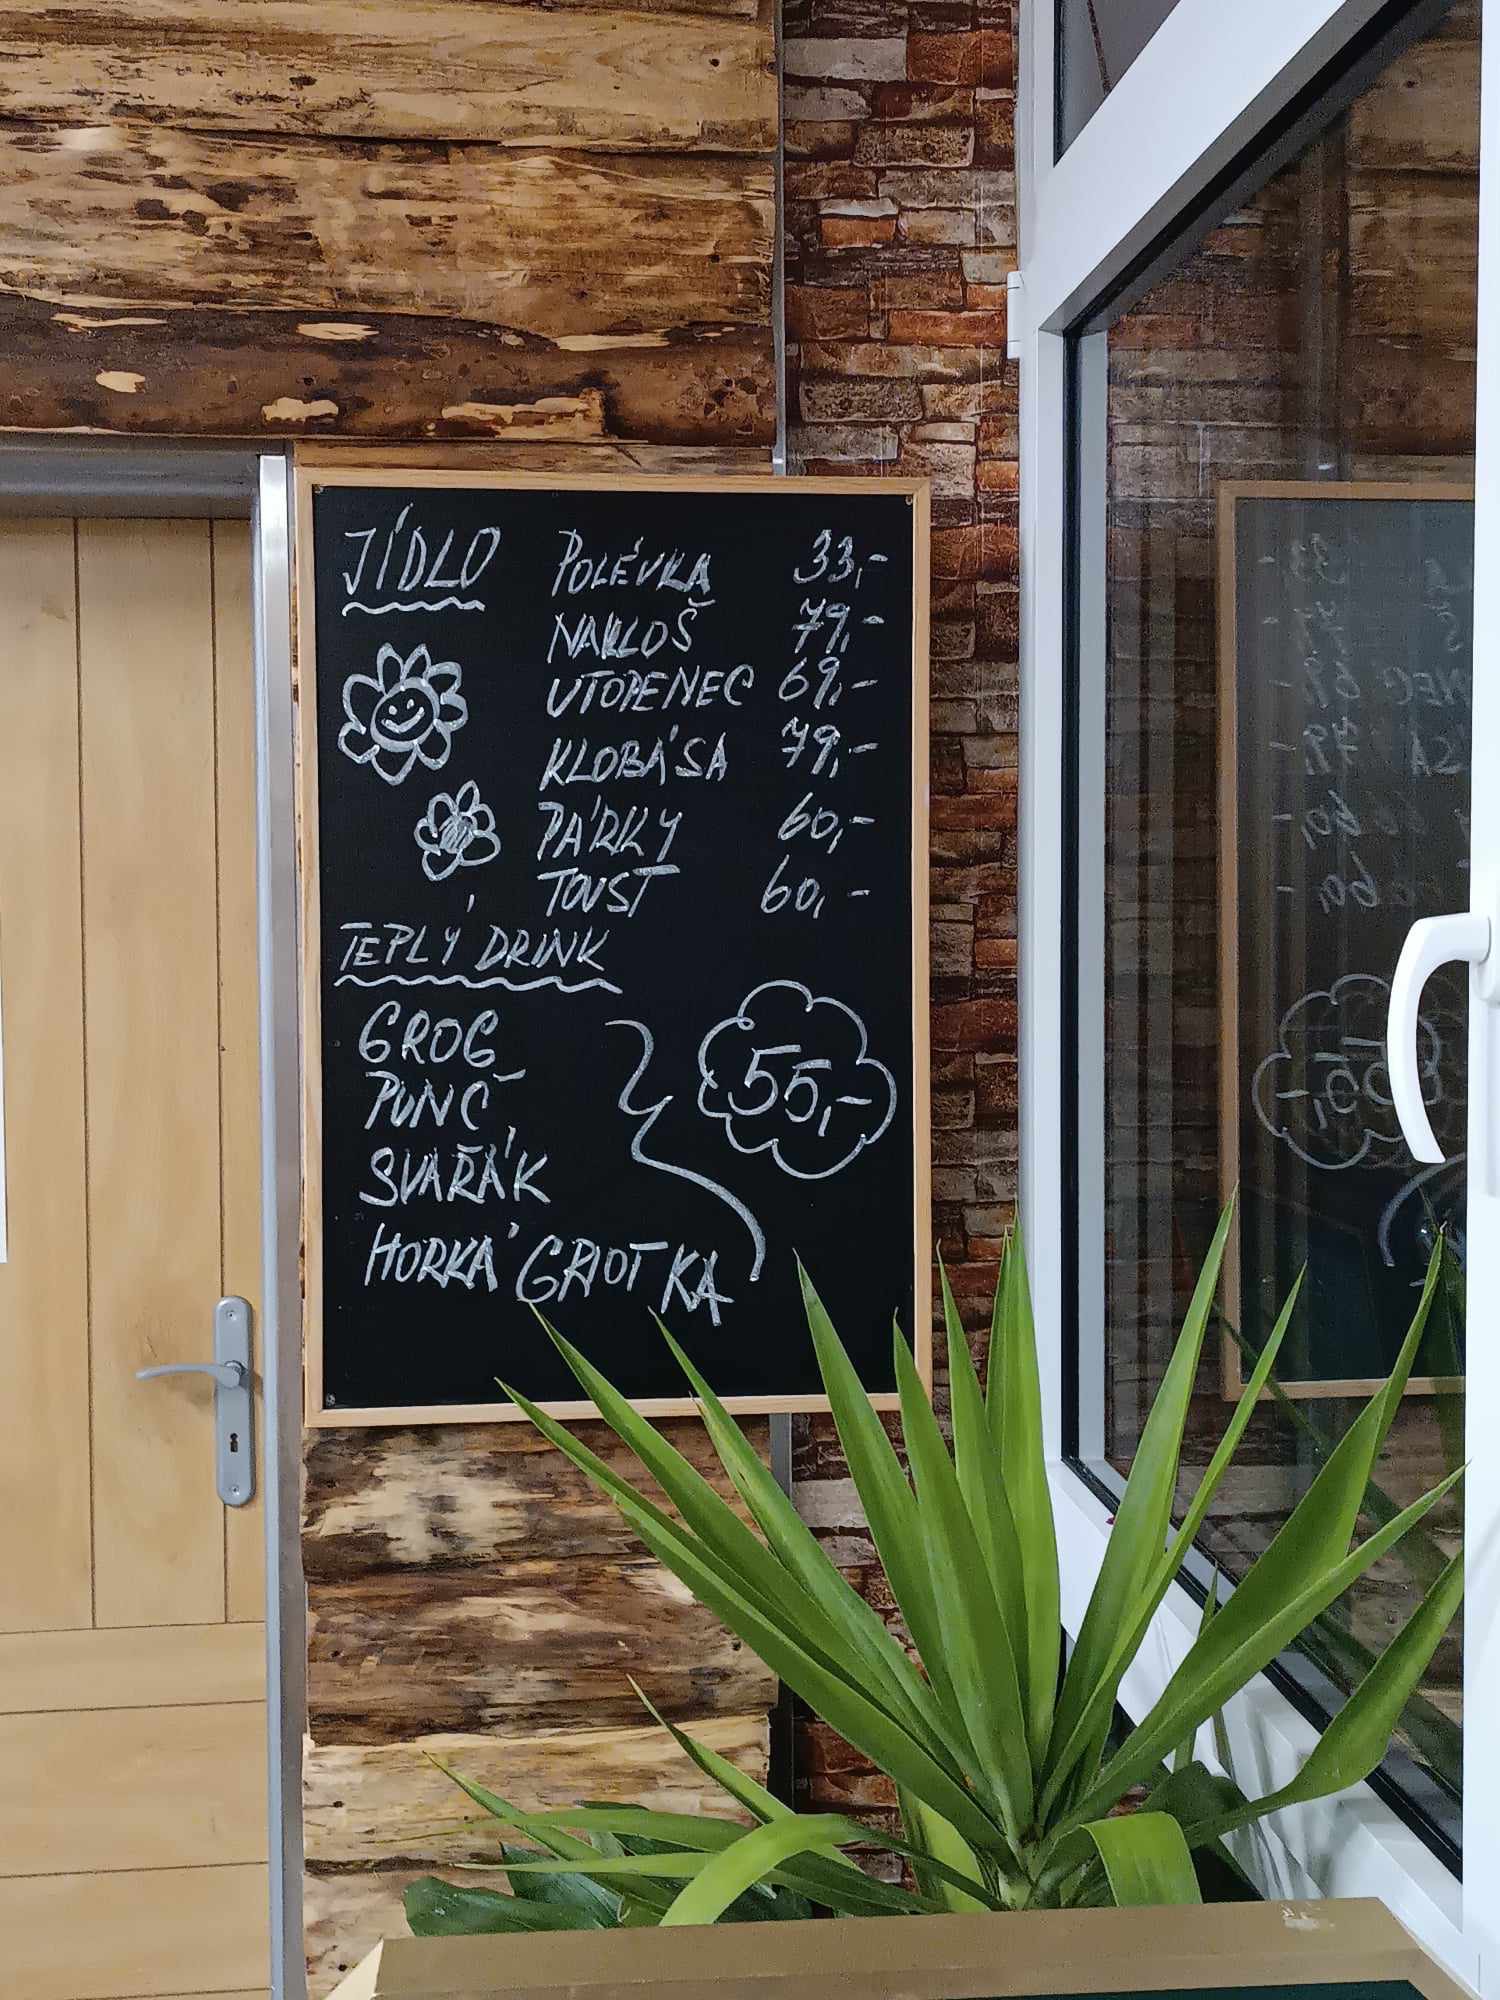 JÍDLO
POLÉVKA 33,-
NAKLOŠ 79,-
UTOPENEC 69,-
KLOBÁSA 79,-
PÁRKY 60,-
TOUST 60,-
TEPLÝ DRINK
GROG
PUNČ
55,-
SVAŘÁK
HORKÁ GRIOTKA